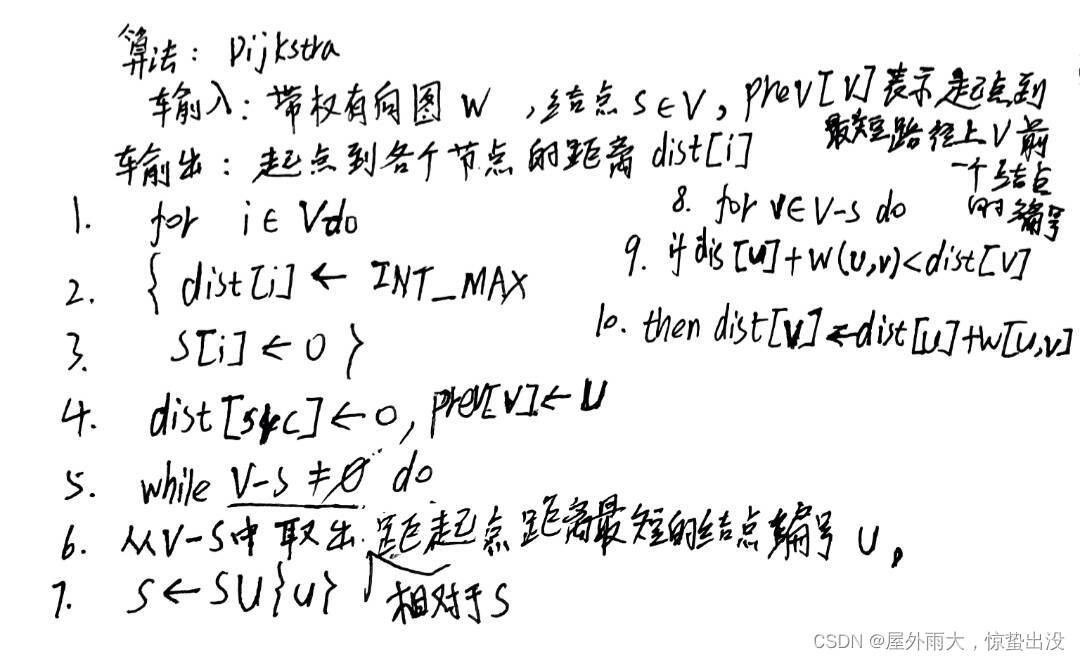 算法: Dijkstra
输入: 带权有向图 W , 结点 S∈V, prev[V]表示起点到
最短路径上V前
一个结点
的编号
输出: 起点到各个节点的距离 dist[i]
1. for i∈V do
2. { dist[i] ← INT_MAX
3. S[i] ← 0 }
4. dist[src] ← 0, prev[v] ← u
5. while V-S ≠ ∅ do
6. 从V-S中取出 距起点距离最短的结点编号 u。
相对于S
7. S ← S∪{u}
8. for v∈V-S do
9. if dis[u]+W(u,v)<dist[v]
10. then dist[v] ← dist[u]+W[u,v]
CSDN @屋外雨大，惊蛰出没